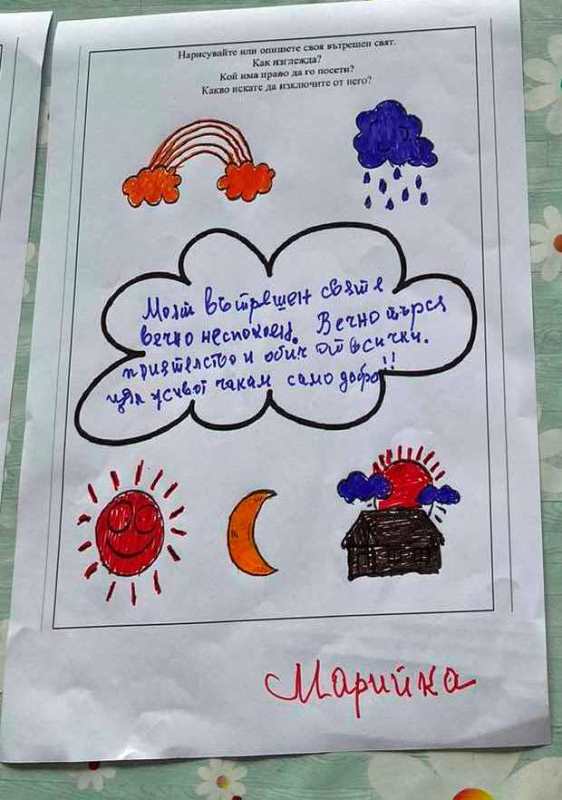 Нарисувайте или опишете своя вътрешен свят.
Как изглежда?
Кой има право да го посети?
Какво искате да изключите от него?
Моят вътрешен святе
вечно неспокоен. Вечно търся
приятелство и обич от всички.
цял живот чакам само добро!!
Марийка